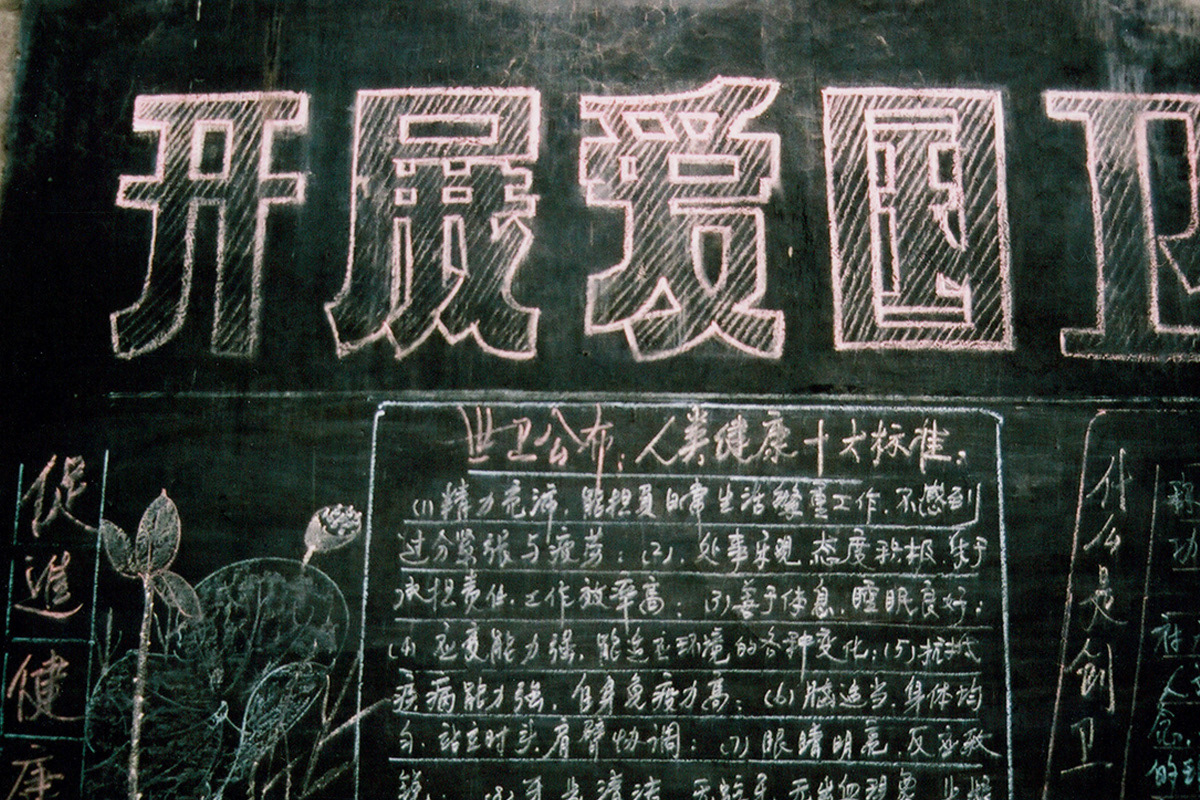 开展爱国卫
促進健康
世卫公布:人类健康十大标准:
(1)精力充沛,能担负日常生活繁重工作,不感到
过分紧张与疲劳;(2),处事乐观,态度积极,乐于
承担责任,工作效率高;(3)善于休息,睡眠良好;
(4)应变能力强,能适应环境的各种变化;(5)抗拒
疾病能力强,自身免疫力高;(6)脑适当,身体均
匀,站立时头,肩臂协调;(7)眼睛明亮,反应敏
锐;(8)牙齿清洁,无蛀牙,无出血现象
什么是创卫